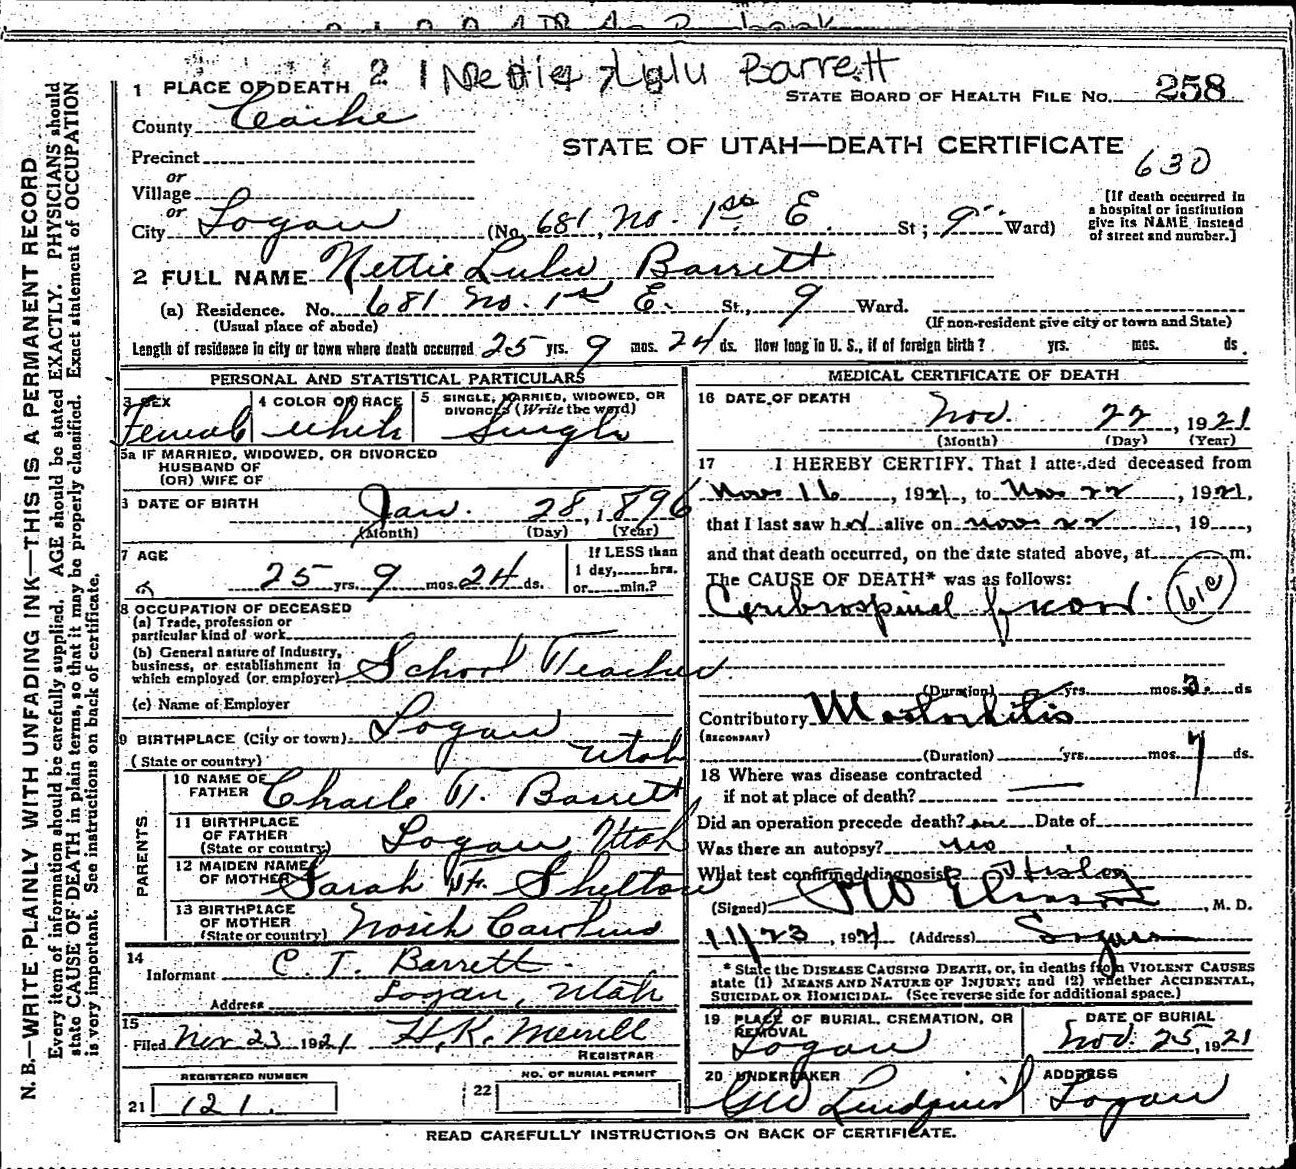 2 1 Nettie Lulu Barrett
1 PLACE OF DEATH
STATE BOARD OF HEALTH FILE No. 258
County Cache
STATE OF UTAH—DEATH CERTIFICATE
630
Precinct
or
Village
or
City Logan (No. 681, No. 1st E. St; 9 Ward)
[If death occurred in
a hospital or institution
give its NAME instead
of street and number.]
2 FULL NAME Nettie Lulu Barrett
(a) Residence. No. 681 No. 1st E. St., 9 Ward.
(Usual place of abode)
(If non-resident give city or town and State)
Length of residence in city or town where death occurred 25 yrs. 9 mos. 24 ds. How long in U. S., if of foreign birth? yrs. mos. ds.
PERSONAL AND STATISTICAL PARTICULARS
3 SEX
Female
4 COLOR OR RACE
White
5 SINGLE, MARRIED, WIDOWED, OR
DIVORCED (Write the word)
Single
5a IF MARRIED, WIDOWED, OR DIVORCED
HUSBAND OF
(OR) WIFE OF
6 DATE OF BIRTH
Jan. 28, 1896
(Month) (Day) (Year)
7 AGE
25 yrs. 9 mos. 24 ds.
If LESS than
1 day, hrs.
or min.?
8 OCCUPATION OF DECEASED
(a) Trade, profession or
particular kind of work
(b) General nature of Industry,
business, or establishment in
which employed (or employer) School Teacher
(c) Name of Employer
9 BIRTHPLACE (City or town) Logan
(State or country) Utah
PARENTS
10 NAME OF
FATHER Charle T. Barrett
11 BIRTHPLACE
OF FATHER
(State or country) Logan Utah
12 MAIDEN NAME
OF MOTHER Sarah Shelton
13 BIRTHPLACE
OF MOTHER
(State or country) North Carolina
14
Informant C. T. Barrett
Address Logan, Utah
15
Filed Nov 23 1921 H. K. Merrill
REGISTRAR
REGISTERED NUMBER
21 121.
NO. OF BURIAL PERMIT
22
MEDICAL CERTIFICATE OF DEATH
16 DATE OF DEATH
Nov. 22, 1921
(Month) (Day) (Year)
17 I HEREBY CERTIFY, That I attended deceased from
Nov 16, 1921, to Nov 22, 1921,
that I last saw her alive on Nov 22, 19
and that death occurred, on the date stated above, at m.
The CAUSE OF DEATH* was as follows:
Cerebrospinal
(Duration) yrs. mos. 3. ds
Contributory Mastoiditis
(SECONDARY)
(Duration) yrs. mos. 7 ds.
18 Where was disease contracted
if not at place of death?
Did an operation precede death? Date of
Was there an autopsy? no
What test confirmed diagnosis?
(Signed) , M. D.
11/23, 1921 (Address) Logan
* State the DISEASE CAUSING DEATH, or, in deaths from VIOLENT CAUSES
state (1) MEANS AND NATURE OF INJURY; and (2) whether ACCIDENTAL,
SUICIDAL OR HOMICIDAL. (See reverse side for additional space.)
19 PLACE OF BURIAL, CREMATION, OR
REMOVAL
Logan
DATE OF BURIAL
Nov. 25, 1921
20 UNDERTAKER
GW Lindquist
ADDRESS
Logan
READ CAREFULLY INSTRUCTIONS ON BACK OF CERTIFICATE.
N. B.—WRITE PLAINLY WITH UNFADING INK—THIS IS A PERMANENT RECORD
Every item of information should be carefully supplied. AGE should be stated EXACTLY. PHYSICIANS should
state CAUSE OF DEATH in plain terms, so that it may be properly classified. Exact statement of OCCUPATION
is very important. See instructions on back of certificate.